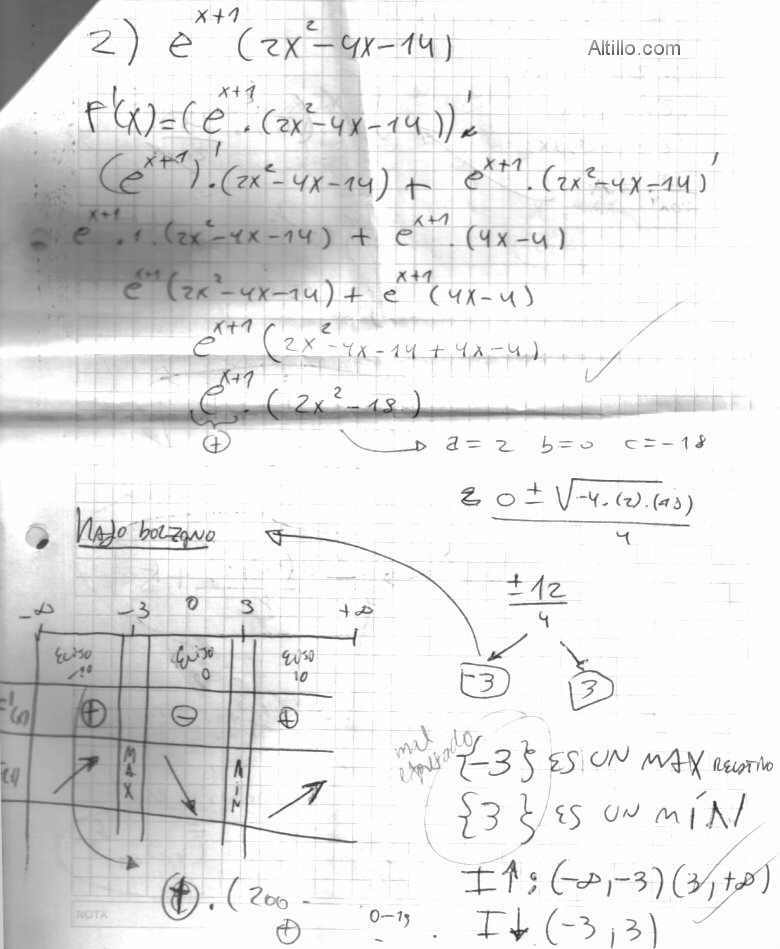 2) e^{x+1} (2x²-4x-14)
Altillo.com
F'(x)=(e^{x+1}.(2x²-4x-14))'
(e^{x+1})'.(2x²-4x-14) + e^{x+1}.(2x²-4x-14)'
e^{x+1}.1.(2x²-4x-14) + e^{x+1}.(4x-4)
e^{x+1}(2x²-4x-14)+ e^{x+1}(4x-4)
e^{x+1}(2x²-4x-14+4x-4)
e^{x+1}.(2x²-18)
+
a=2 b=0 c=-18
0±√-4.(2).(18)
4
HAGO BOLZANO
±12
4
-3 3
-∞ -3 0 3 +∞
EVISO EVISO EVISO
-10 0 10
+ - +
MAX MIN
mal expresado
{-3} ES UN MAX RELATIVO
{3} ES UN MÍN
I↑: (-∞,-3)(3,+∞)
+.(200 -
+
0-18
-
I↓ (-3,3)
NOTA